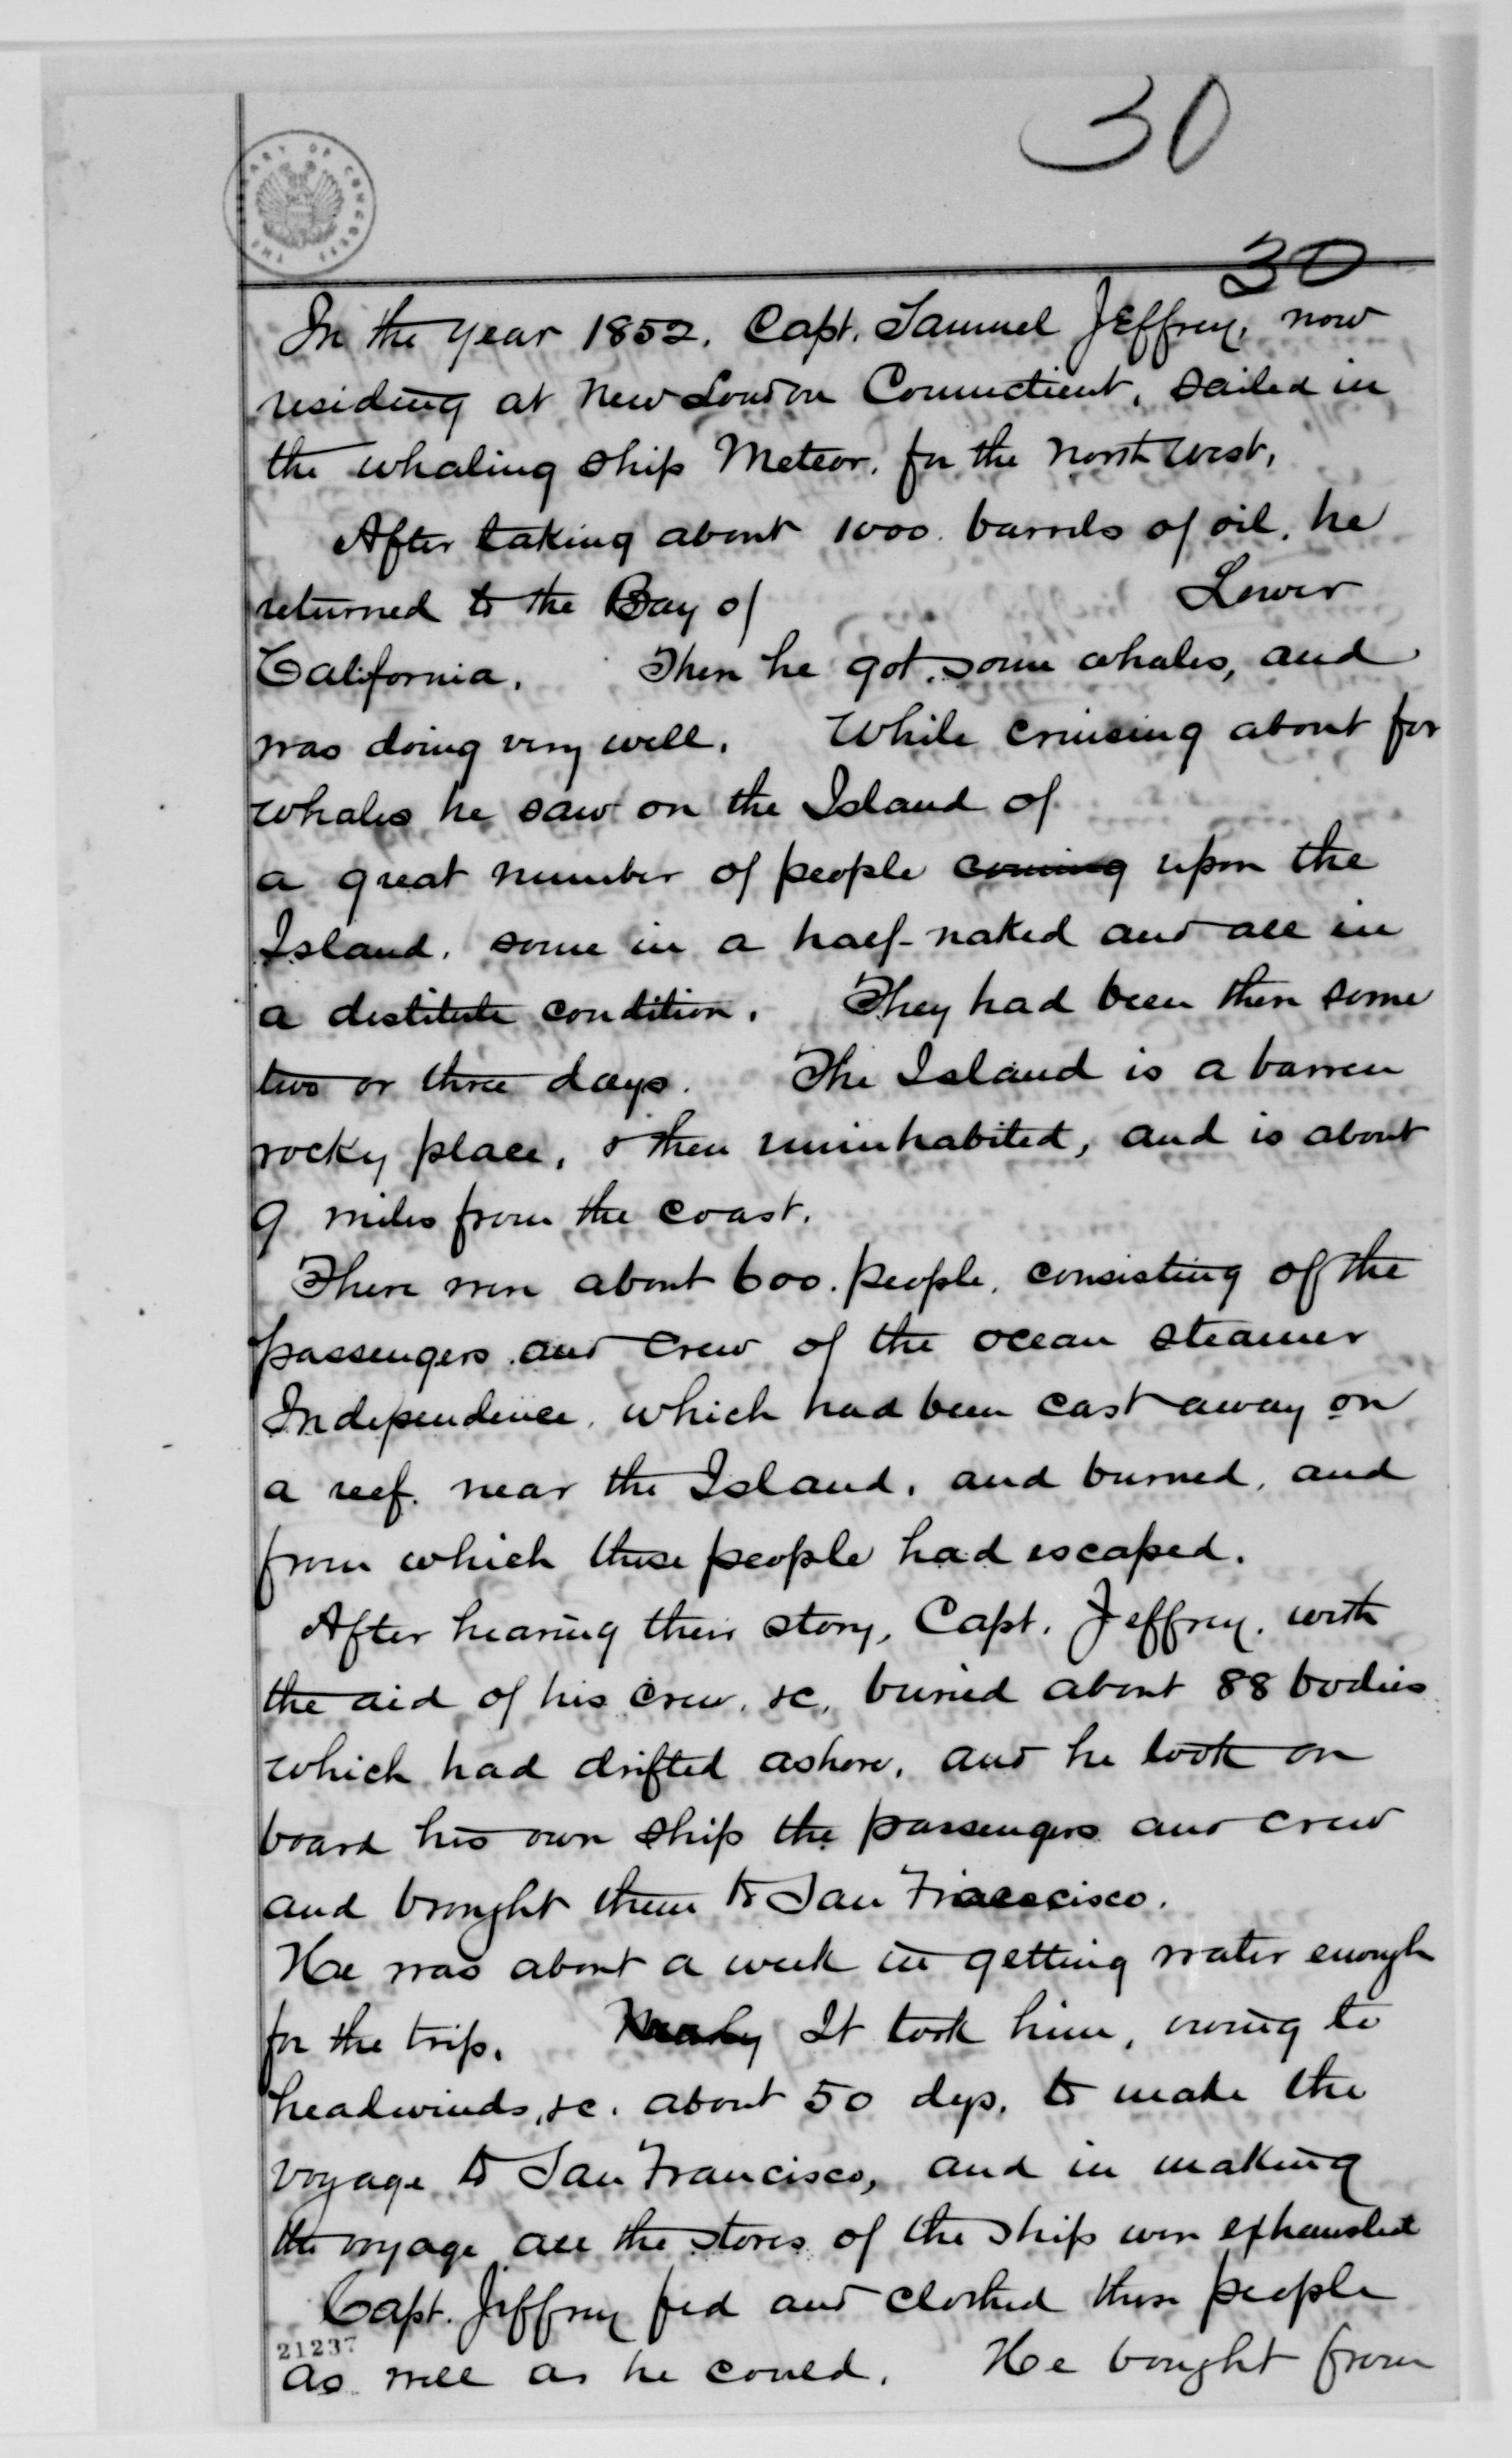 30
THE LIBRARY OF CONGRESS
30
In the year 1852, Capt. Samuel Jeffrey, now
residing at New London Connecticut, sailed in
the whaling ship Meteor, for the North West,
After taking about 1000 barrels of oil, he
returned to the Bay of Lower
California. Then he got some whales, and
was doing very well. While cruising about for
whales he saw on the Island of
a great number of people coming upon the
Island, some in a half-naked and all in
a destitute condition. They had been then some
two or three days. The Island is a barren
rocky place, & then uninhabited, and is about
9 miles from the coast.
There were about 600 people, consisting of the
passengers and crew of the ocean steamer
Independence, which had been cast away on
a reef near the Island, and burned, and
from which these people had escaped.
After hearing their story, Capt. Jeffrey, with
the aid of his crew, &c, buried about 88 bodies
which had drifted ashore, and he took on
board his own ship the passengers and crew
and brought them to San Francisco.
He was about a week in getting water enough
for the trip. Nearly It took him, owing to
headwinds, &c. about 50 dys, to make the
voyage to San Francisco, and in making
the voyage all the stores of the ship were exhausted
Capt. Jeffrey fed and clothed these people
21237
as well as he could. He bought from